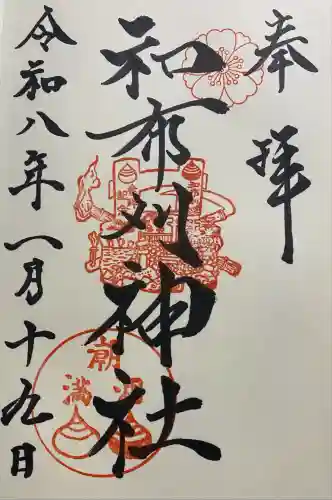 奉拝
和布刈神社
令和八年一月十九日